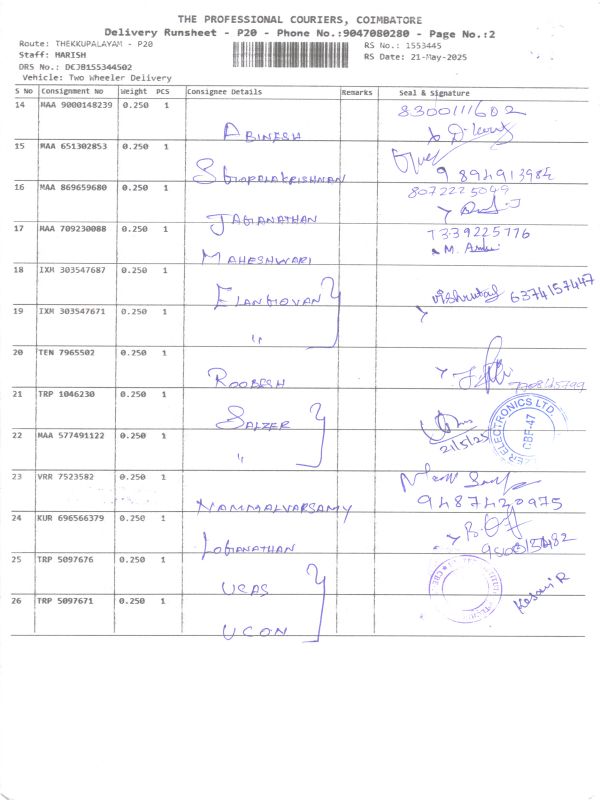 THE PROFESSIONAL COURIERS, COIMBATORE
Delivery Runsheet - P20 - Phone No.:9047080280 - Page No.:2
Route: THEKKUPALAYAM - P20
RS No.: 1553445
Staff: HARISH
RS Date: 21-May-2025
DRS No.: DCJB155344502
Vehicle: Two Wheeler Delivery
S No Consignment No Weight PCS Consignee Details Remarks Seal & Signature
14 MAA 9000148239 0.250 1 ABINESH 8300111602
15 MAA 651302853 0.250 1 SGOPALAKRISHNAN 9894913984
16 MAA 869659680 0.250 1 JAGANATHAN 8072225049
17 MAA 709230088 0.250 1 MAHESHWARI 7339225776
18 IXM 303547687 0.250 1 ELANGOVAN 6374157447
19 IXM 303547671 0.250 1 "
20 TEN 7965502 0.250 1 ROOBESH
21 TRP 1046230 0.250 1 SALZER 21/5/25 ELECTRONICS LTD. CBF-47
22 MAA 577491122 0.250 1 "
23 VRR 7523582 0.250 1 NAMMALVARSAMY 9487420975
24 KUR 696566379 0.250 1 LOGANATHAN
25 TRP 5097676 0.250 1 UCAS
26 TRP 5097671 0.250 1 UCON Kesavi R